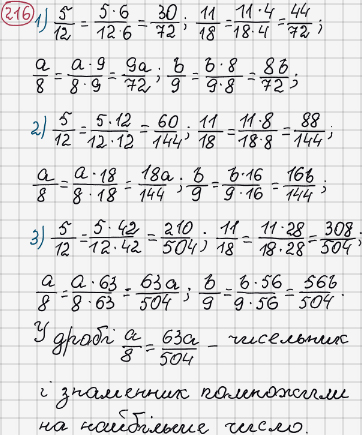 216 1) 5/12 = 5·6/12·6 = 30/72; 11/18 = 11·4/18·4 = 44/72;
a/8 = a·9/8·9 = 9a/72; b/9 = b·8/9·8 = 8b/72;
2) 5/12 = 5·12/12·12 = 60/144; 11/18 = 11·8/18·8 = 88/144;
a/8 = a·18/8·18 = 18a/144; b/9 = b·16/9·16 = 16b/144;
3) 5/12 = 5·42/12·42 = 210/504; 11/18 = 11·28/18·28 = 308/504;
a/8 = a·63/8·63 = 63a/504; b/9 = b·56/9·56 = 56b/504.
У дробі a/8 = 63a/504 – чисельник
і знаменник помножили
на найбільше число.